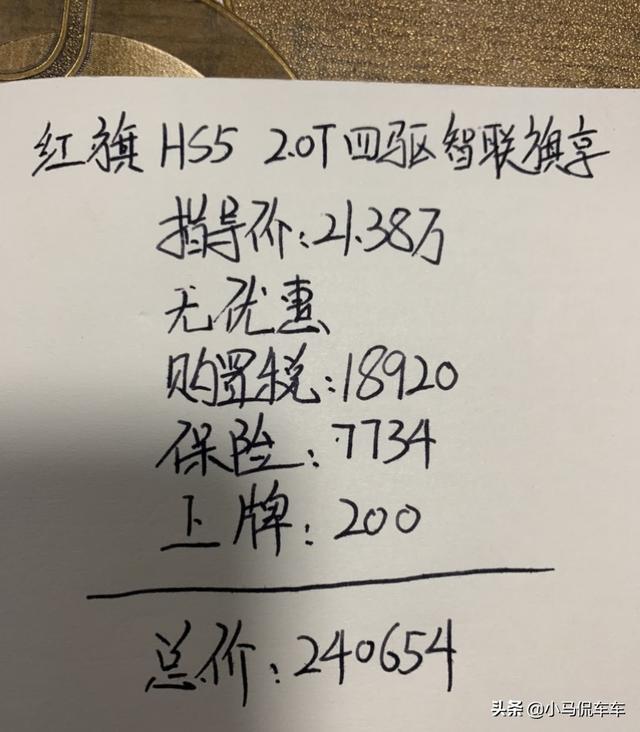 红旗 HS5 2.0T四驱智联旗享
指导价:21.38万
无优惠
购置税:18920
保险:7734
上牌:200
总价:240654
头条 @小马侃车车